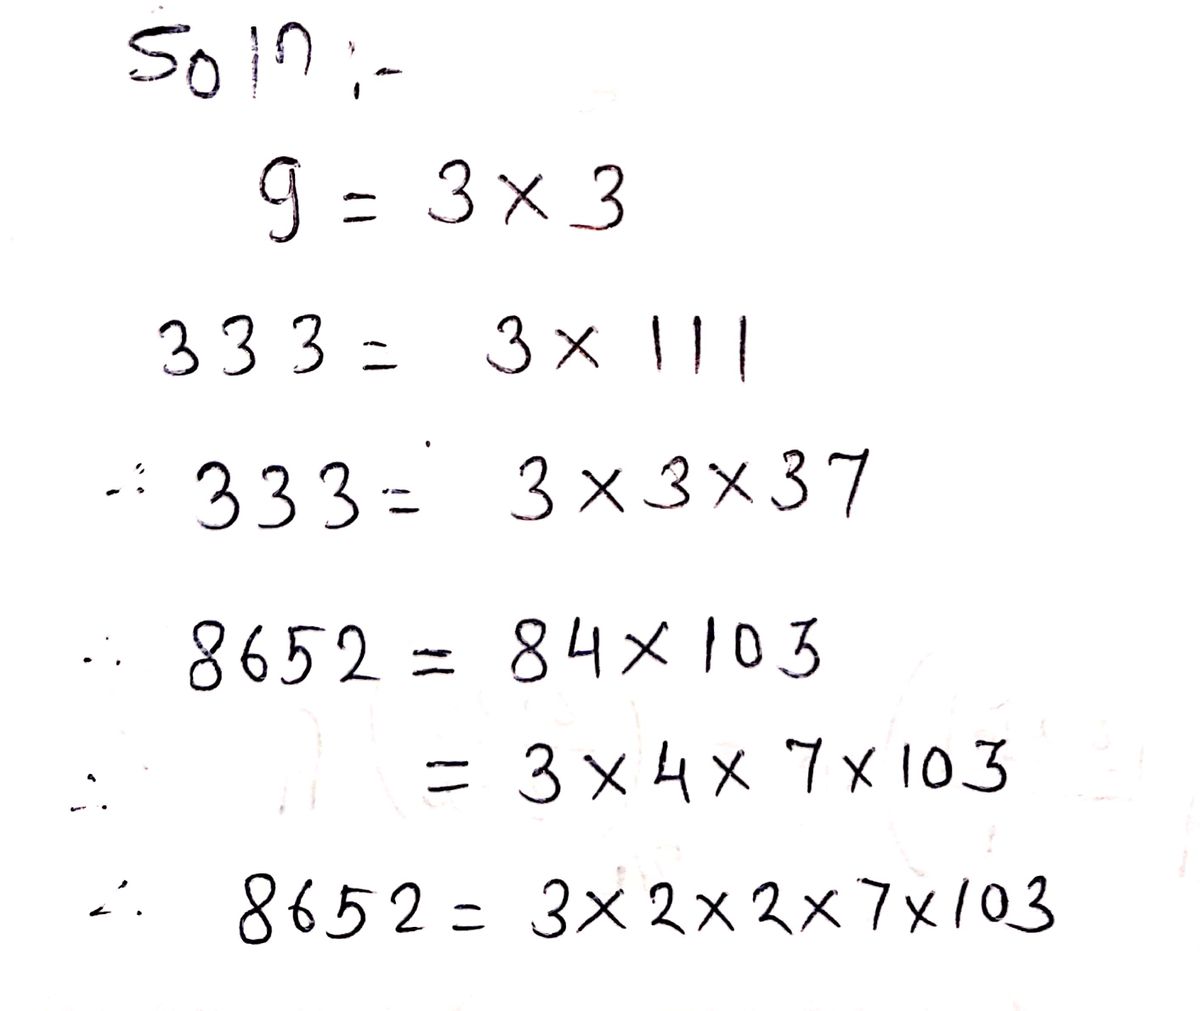 Soln :-
9 = 3 × 3
333 = 3 × 111
∴ 333 = 3 × 3 × 37
∴ 8652 = 84 × 103
∴ = 3 × 4 × 7 × 103
∴ 8652 = 3 × 2 × 2 × 7 × 103